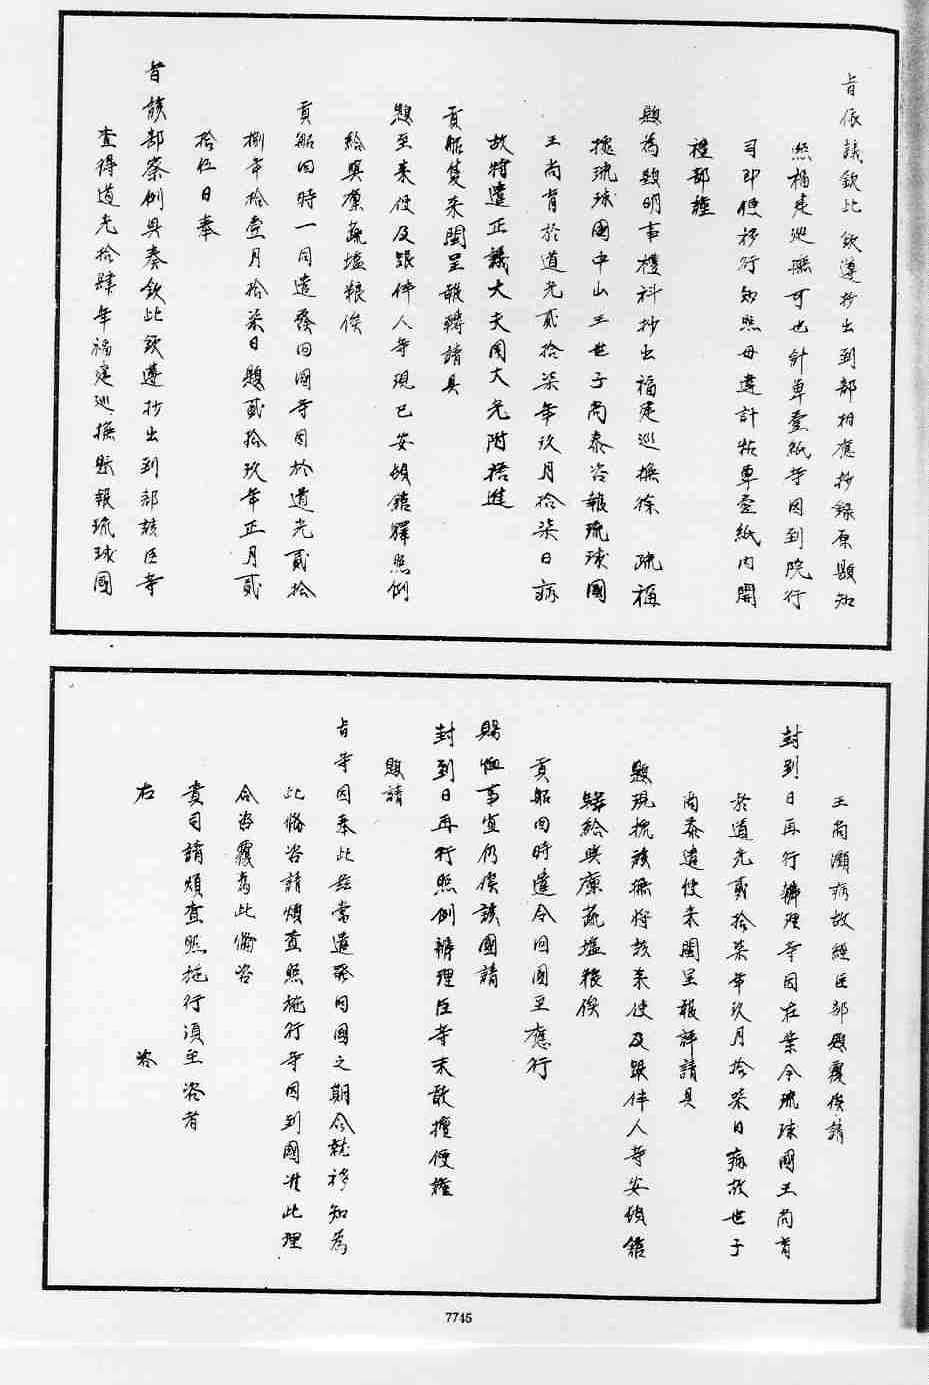 旨依議欽此欽遵抄出到部相應抄錄原題知
照福建巡撫可也計單壹紙等因到院行
司即便移行知照毋違計粘單壹紙內開
禮部謹
題為題明事禮科抄出福建巡撫徐 疏稱
據琉球國中山王世子尚泰咨報琉球國
王尚育於道光貳拾柒年玖月拾柒日病
故特遣正議大夫國大光附搭進
貢船隻來閩呈報轉請具
題至來使及跟伴人等現已安頓館驛照例
給與廩蔬塩糧俟
貢船回時一同遣發回國等因於道光貳拾
捌年拾壹月拾柒日題貳拾玖年正月貳
拾伍日奉
旨該部察例具奏欽此欽遵抄出到部該臣等
查得道光拾肆年福建巡撫題報琉球國
王尚灝病故經臣部題覆俟請
封到日再行辦理等因在案今琉球國王尚育
於道光貳拾柒年玖月拾柒日病故世子
尚泰遣使來閩呈報詳請具
題現據該撫將該來使及跟伴人等安頓館
驛給與廩蔬塩糧俟
貢船回時遣令回國至應行
賜恤事宜仍俟該國請
封到日再行照例辦理臣等未敢擅便謹
題請
旨等因奉此茲當遣發回國之期合就移知為
此備咨請煩查照施行等因到國准此理
合咨覆為此備咨
貴司請煩查照施行須至咨者
右 咨
7745